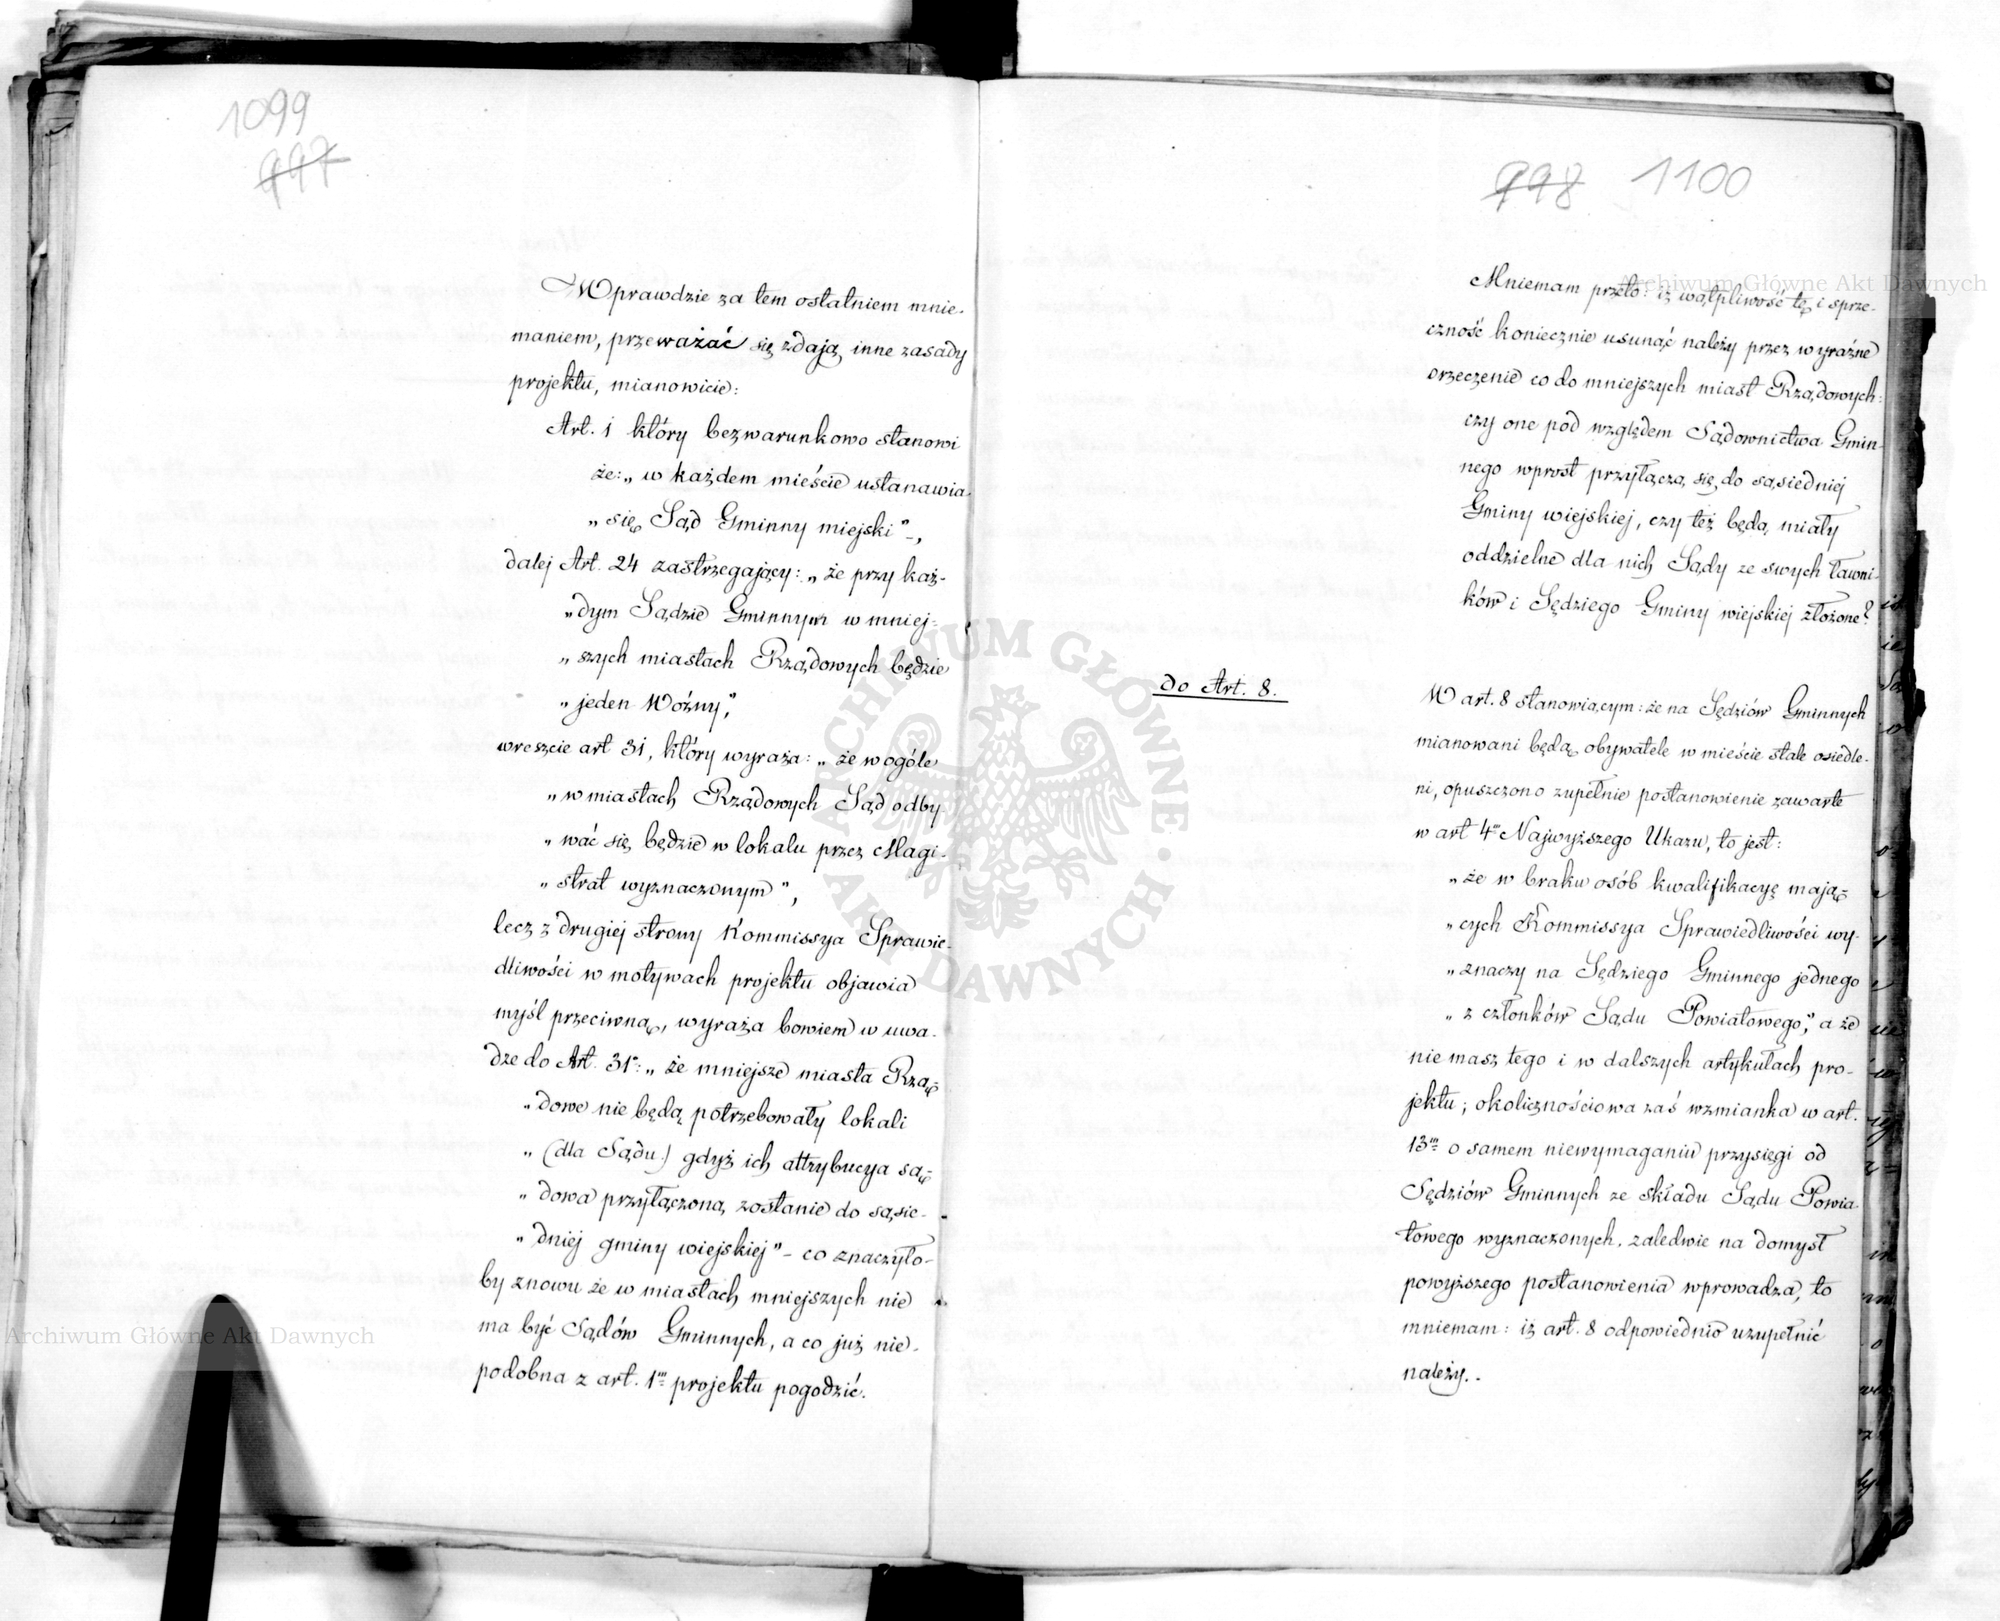 1099
997
Wprawdzie za tem ostatniem mnie-
maniem, przeważać się zdają inne zasady
projektu, mianowicie:
Art. 1 który bezwarunkowo stanowi
że: „w każdem mieście ustanawia
„się Sąd Gminny miejski" -,
dalej Art. 24 zastrzegający: „że przy każ-
„dym Sądzie Gminnym w mniej-
„szych miastach Rządowych będzie
„jeden Woźny",
wreszcie art 31, który wyraża: „że w ogóle
„w miastach Rządowych Sąd odby-
„wać się będzie w lokalu przez Magi-
„strat wyznaczonym",
lecz z drugiej strony Kommissya Sprawie-
dliwości w motywach projektu objawia
myśl przeciwną, wyraża bowiem w uwa-
dze do Art. 31º: „że mniejsze miasta Rzą-
„dowe nie będą potrzebowały lokali
„(dla Sądu) gdyż ich attrybucya są-
„dowa przyłączoną zostanie do sąsie-
„dniej gminy wiejskiej" - co znaczyło-
by znowu że w miastach mniejszych nie
ma być Sądów Gminnych, a co już nie-
podobna z art. 1m projektu pogodzić.
998 1100
Mniemam przeto: iż wątpliwość tę i sprze-
czność koniecznie usunąć należy przez wyraźne
orzeczenie co do mniejszych miast Rządowych:
czy one pod względem Sądownictwa Gmin-
nego wprost przyłączą się do sąsiedniej
Gminy wiejskiej, czy też będą miały
oddzielne dla nich Sądy ze swych ławni-
ków i Sędziego Gminy wiejskiej złożone?
do Art. 8.
W art. 8 stanowiącym: że na Sędziów Gminnych
mianowani będą obywatele w mieście stale osiedle-
ni, opuszczono zupełnie postanowienie zawarte
w art 4m Najwyższego Ukazu, to jest:
„że w braku osób kwalifikacyę mają-
„cych Kommissya Sprawiedliwości wy-
„znaczy na Sędziego Gminnego jednego
„z członków Sądu Powiatowego", a że
nie masz tego i w dalszych artykułach pro-
jektu; okolicznościowa zaś wzmianka w art.
13m o samem niewymaganiu przysięgi od
Sędziów Gminnych ze składu Sądu Powia-
towego wyznaczonych, zaledwie na domysł
powyższego postanowienia wprowadza, to
mniemam: iż art. 8 odpowiednio uzupełnić
należy..
Archiwum Główne Akt Dawnych
ARCHIWUM GŁÓWNE AKT DAWNYCH
Archiwum Główne Akt Dawnych